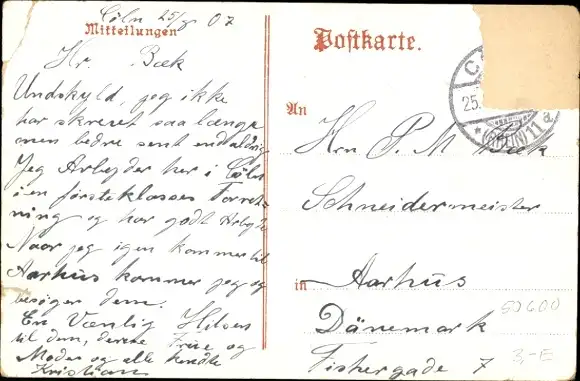 Cöln 25/8 07
Mitteilungen
Hr. Bæk
Undskyld, jeg ikke
har skrevet saa længe
men bedre sent end aldrig
Jeg Arbejder her i Cöln
i en førsteklasses Forret-
ning og har godt Arbejde
Naar jeg igen kommer til
Aarhus kommer jeg og
besøger dem.
En Venlig Hilsen
til dem, deres Frue og
Moder og alle kendte
Kristian
Postkarte.
C
25.
11 a
An
Hrn P. M Bæk
Schneidermeister
in Aarhus
Dänemark
Fishergade 7
50600
3,-E